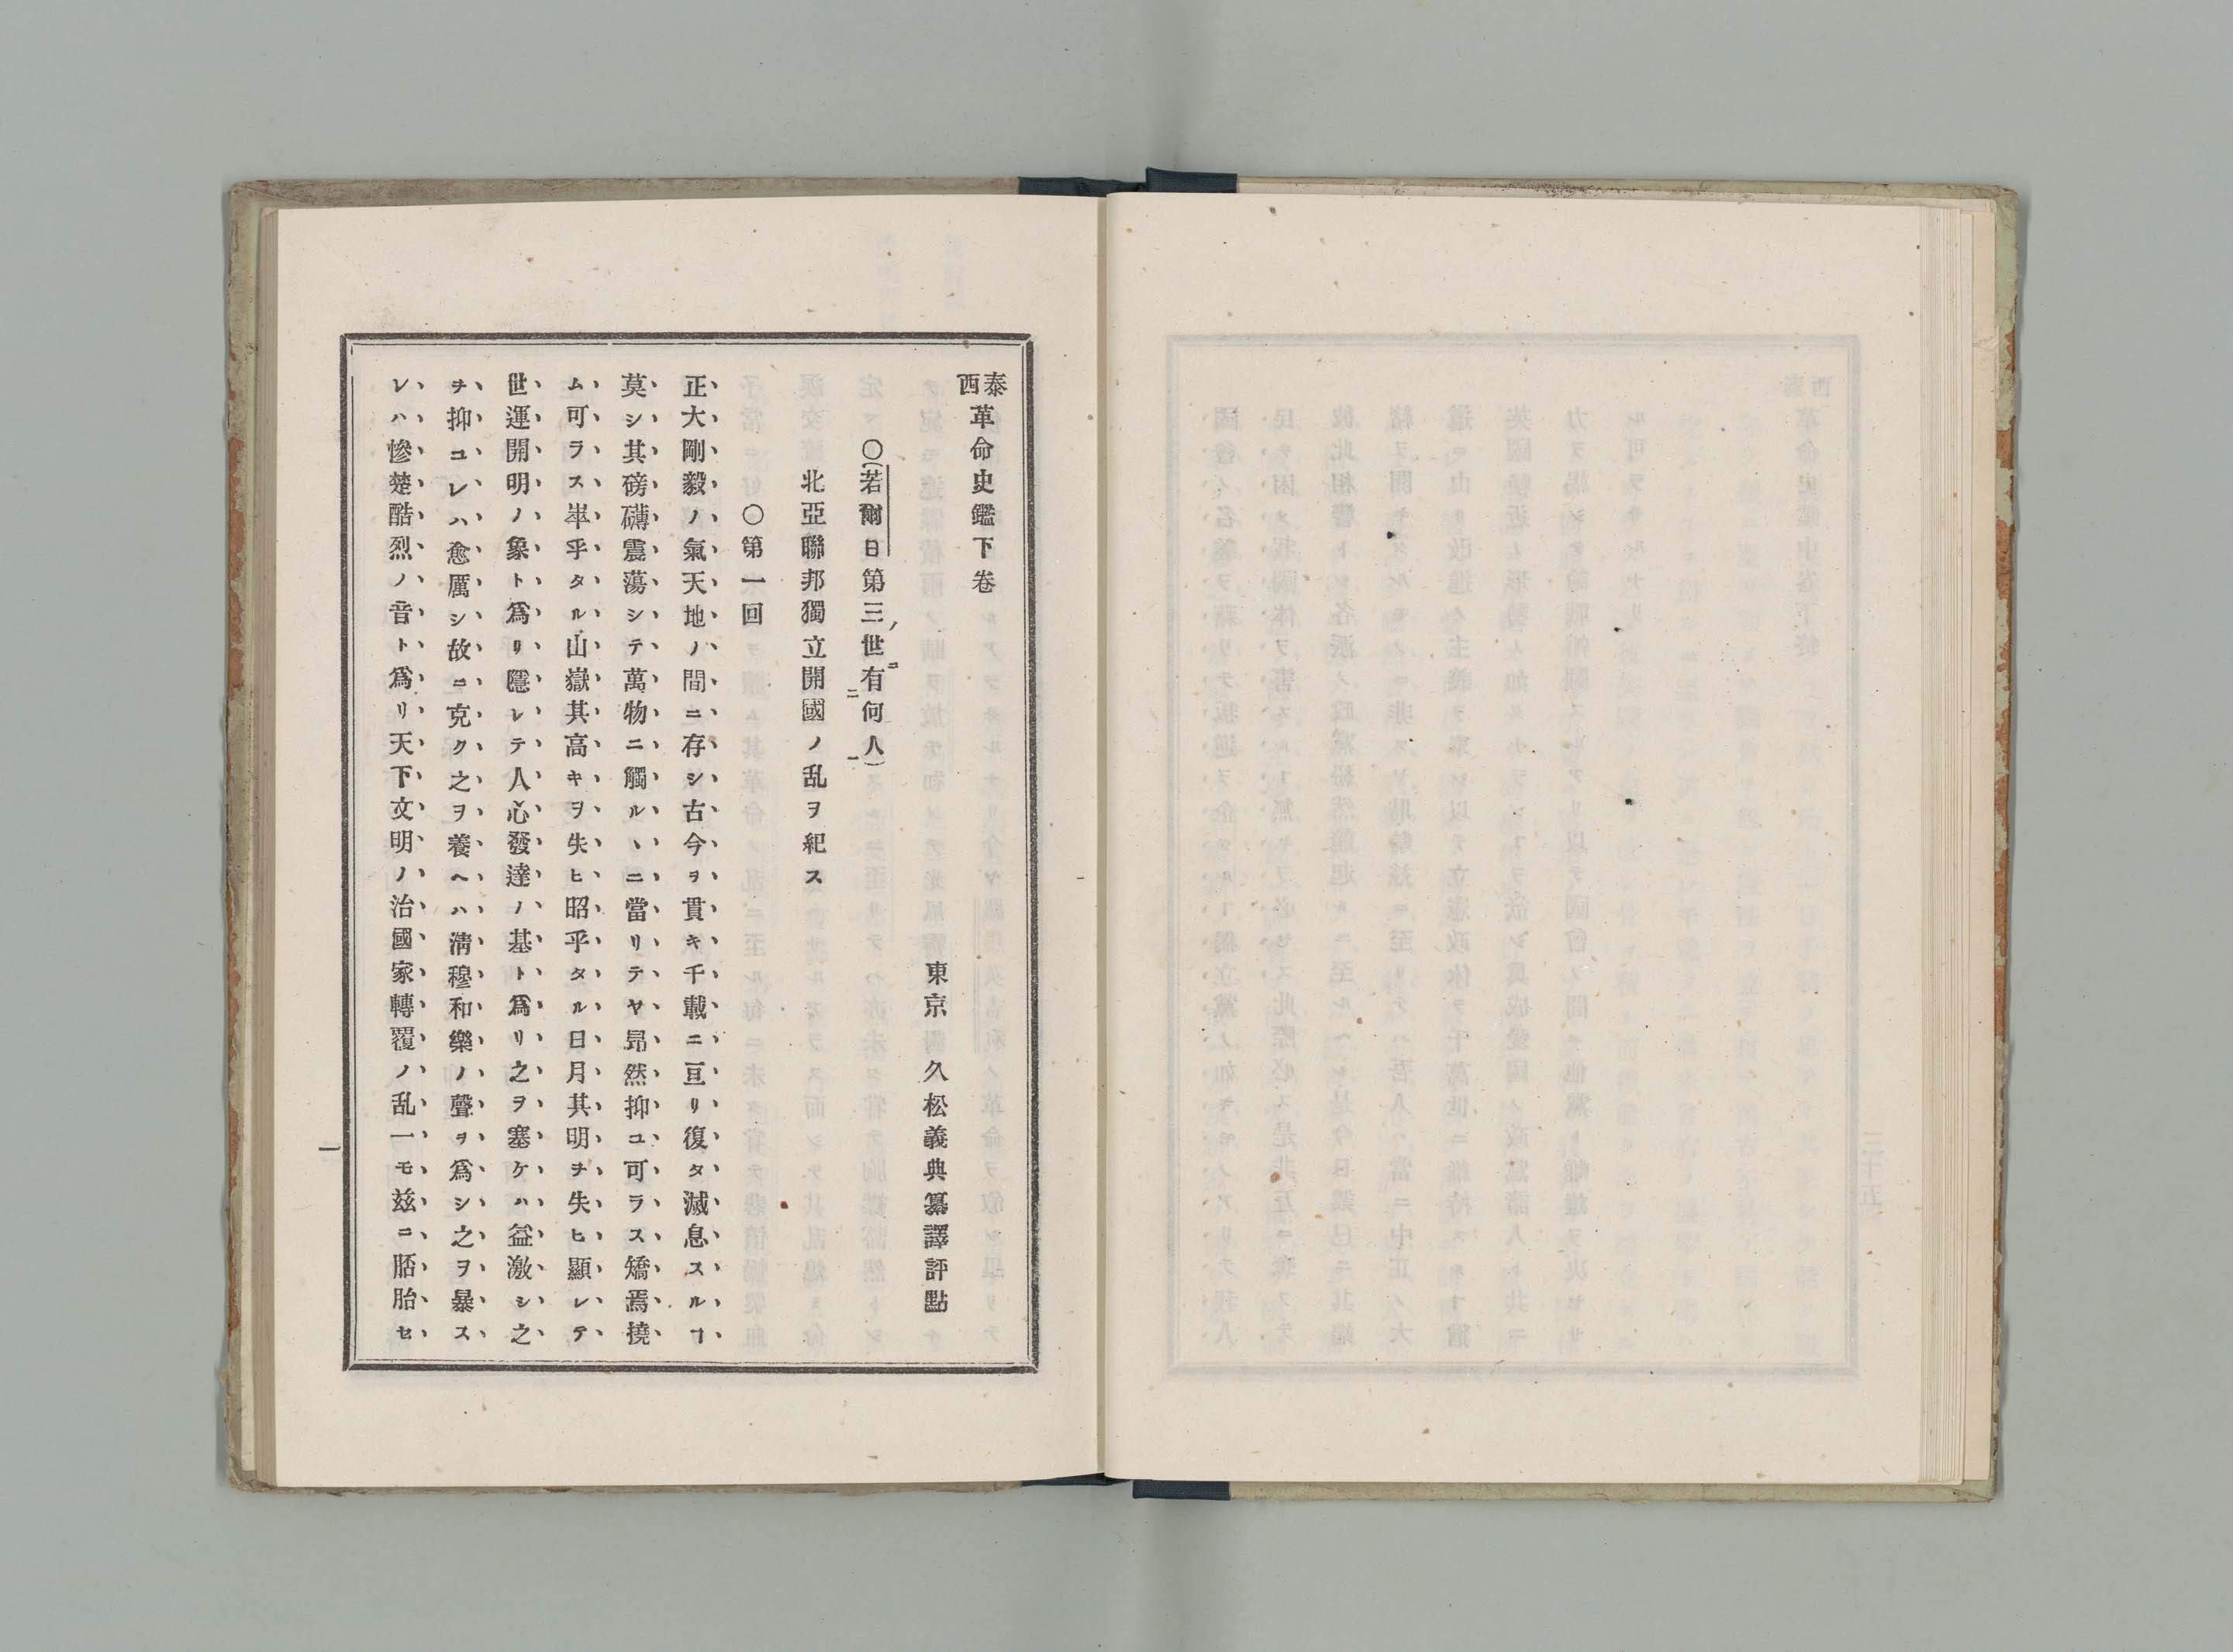 泰西革命史鑑下卷
東京 久松義典纂譯評點
〇(若爾日第三世ノ世ニ有何人)
北亞聯邦獨立開國ノ乱ヲ紀ス
〇第一回
正大剛毅ノ氣天地ノ間ニ存シ古今ヲ貫キ千載ニ亘リ復タ滅息スルヿ
莫シ其磅礴震蕩シテ萬物ニ觸ルヽニ當リテヤ昻然抑ユ可ラス矯焉撓
ム可ラス崒乎タル山嶽其高キヲ失ヒ昭乎タル日月其明ヲ失ヒ顯レテ
世運開明ノ象ト爲リ隱レテ人心發達ノ基ト爲リ之ヲ塞ケハ益激シ之
ヲ抑ユレハ愈厲シ故ニ克ク之ヲ養ヘハ淸穆和樂ノ聲ヲ爲シ之ヲ暴ス
レハ慘楚酷烈ノ音ト爲リ天下文明ノ治國家轉覆ノ乱一モ兹ニ胚胎セ
一